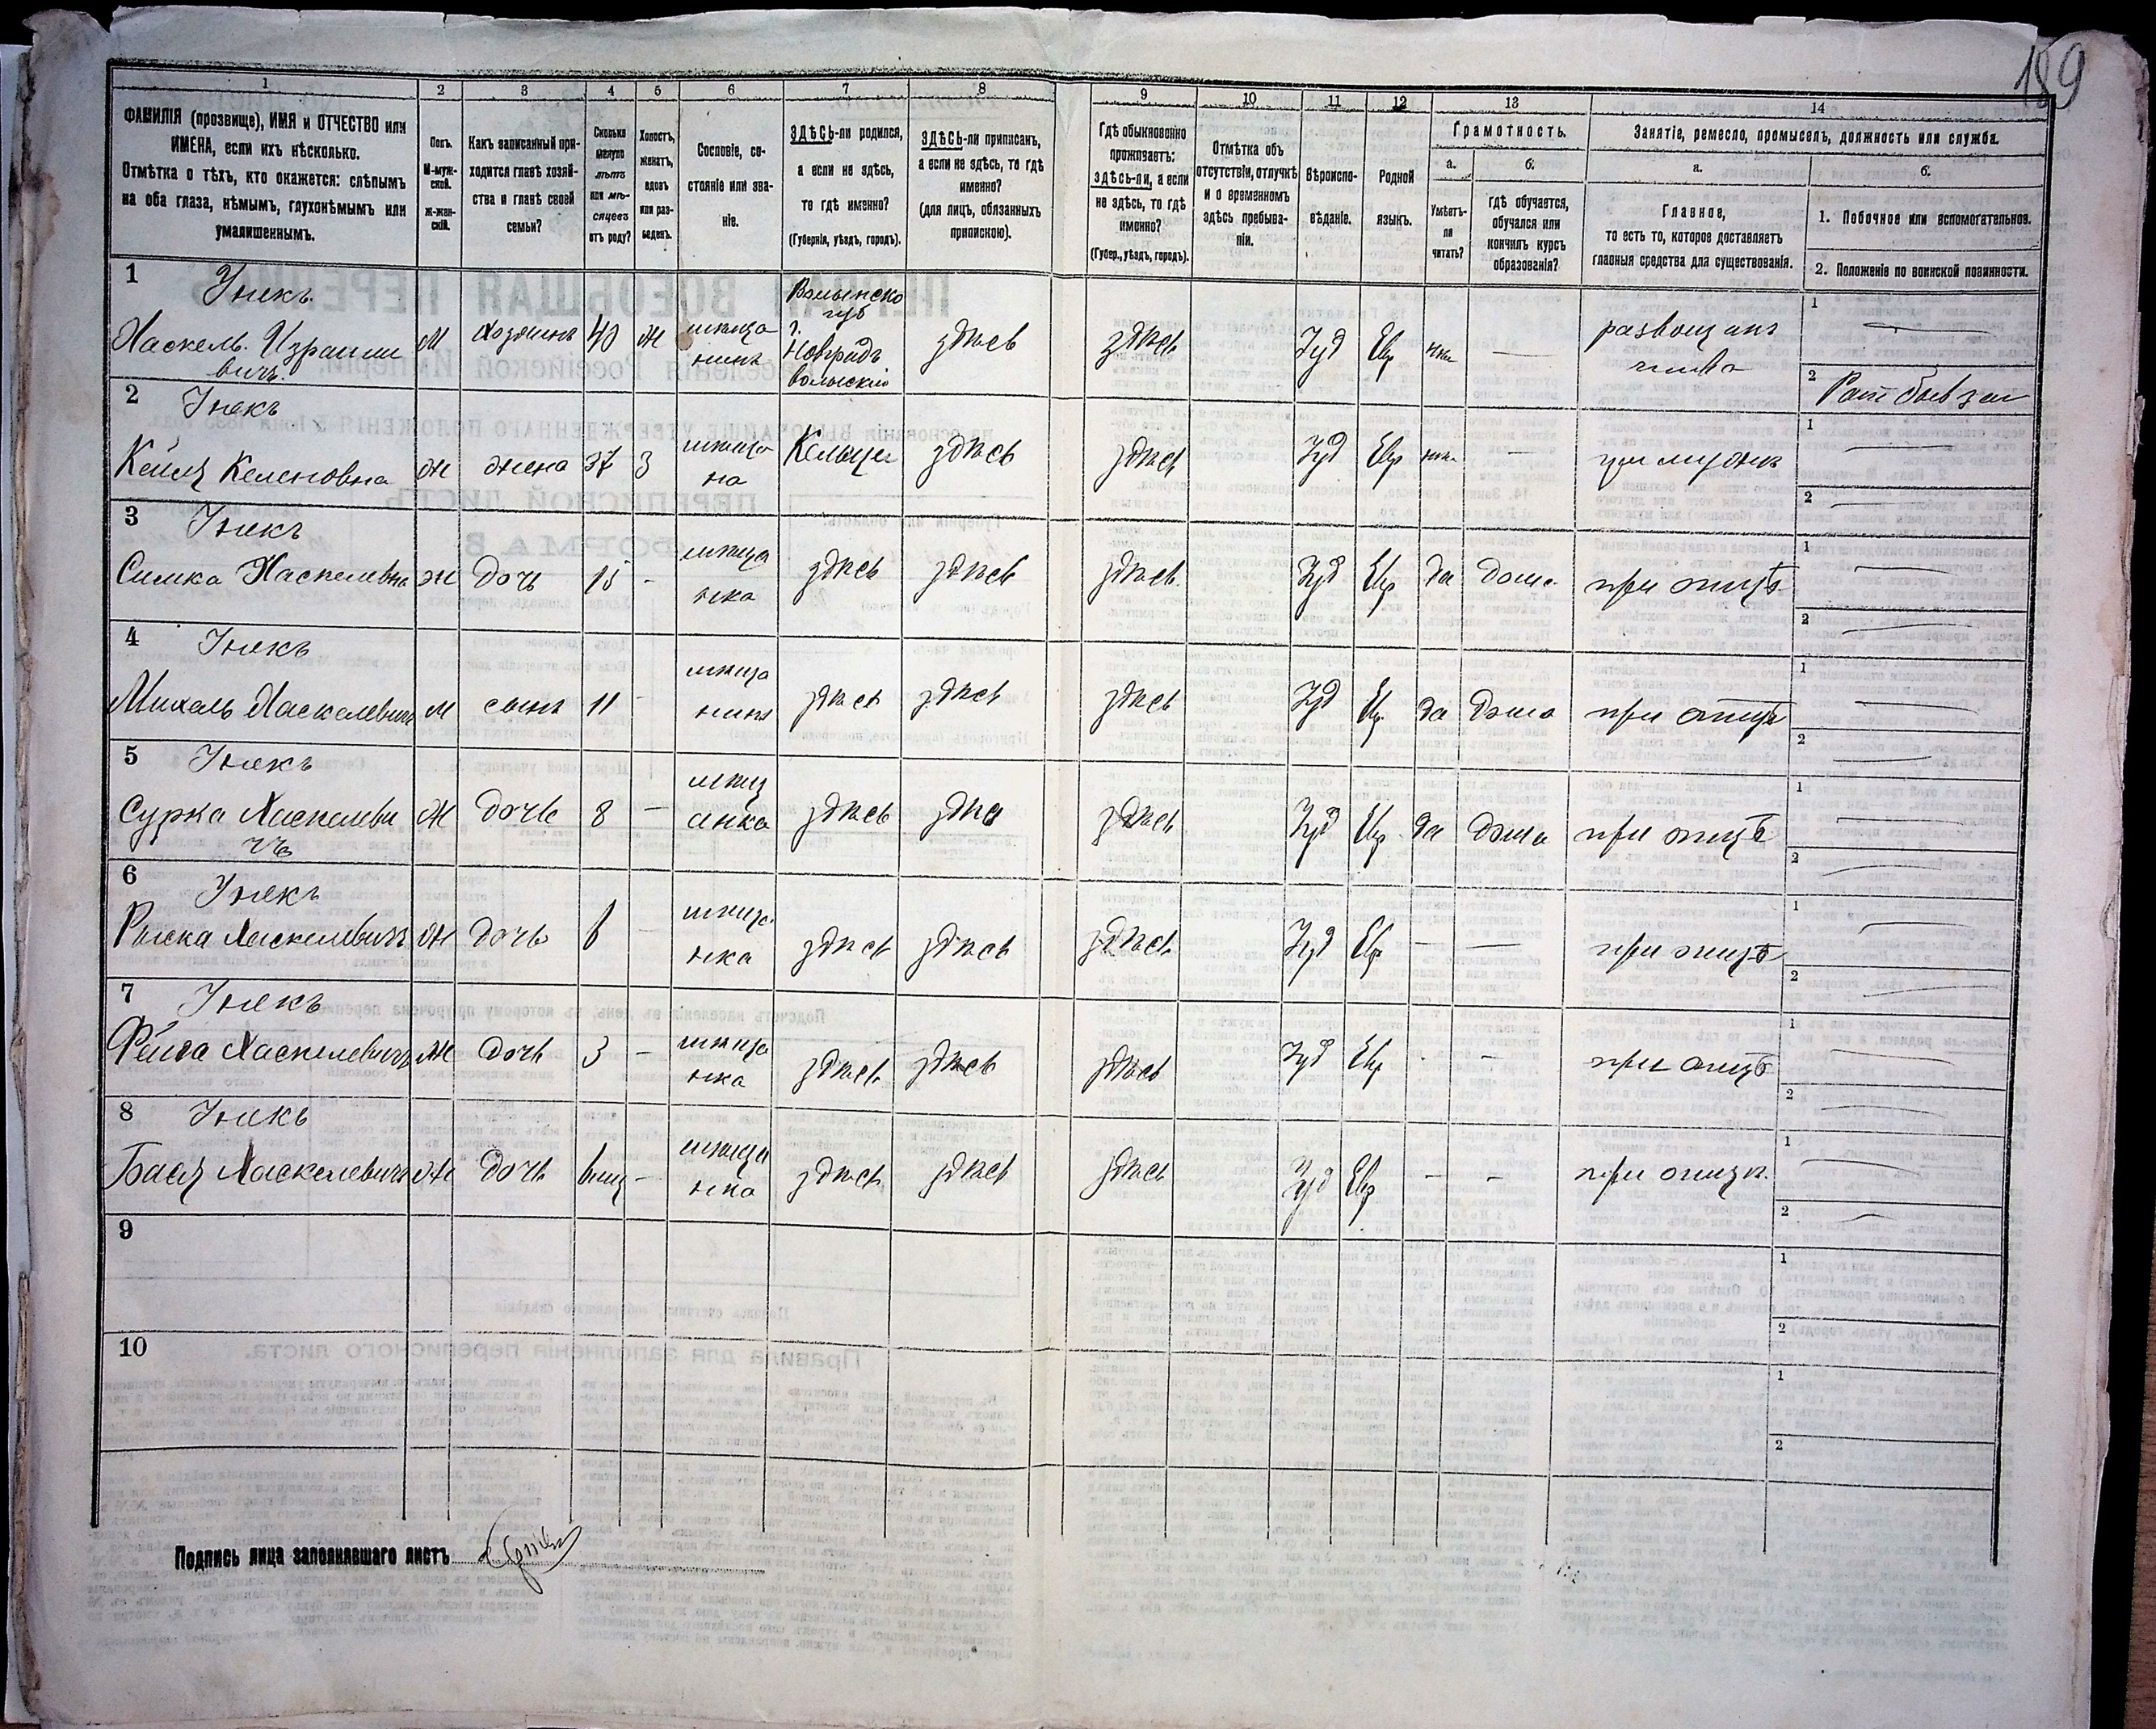 189
1 2 3 4 5 6 7 8 9 10 11 12 13 14
ФАМИЛІЯ (прозвище), ИМЯ и ОТЧЕСТВО или ИМЕНА, если ихъ нѣсколько.
Отмѣтка о тѣхъ, кто окажется: слѣпымъ на оба глаза, нѣмымъ, глухонѣмымъ или умалишеннымъ.
Полъ. М-мужской. Ж-женскій.
Какъ записанный приходится главѣ хозяйства и главѣ своей семьи?
Сколько минуло лѣтъ или мѣсяцевъ отъ роду?
Холостъ, женатъ, вдовъ или разведенъ.
Сословіе, состояніе или званіе.
ЗДѢСЬ-ли родился, а если не здѣсь, то гдѣ именно? (Губернія, уѣздъ, городъ).
ЗДѢСЬ-ли приписанъ, а если не здѣсь, то гдѣ именно? (для лицъ, обязанныхъ припискою).
Гдѣ обыкновенно проживаетъ: здѣсь-ли, а если не здѣсь, то гдѣ именно? (Губер., уѣздъ, городъ).
Отмѣтка объ отсутствіи, отлучкѣ и о временномъ здѣсь пребываніи.
Вѣроисповѣданіе.
Родной языкъ.
Грамотность.
а. Умѣетъ-ли читать?
б. гдѣ обучается, обучался или кончилъ курсъ образованія?
Занятіе, ремесло, промыселъ, должность или служба.
а. Главное, то есть то, которое доставляетъ главныя средства для существованія.
б.
1. Побочное или вспомогательное.
2. Положеніе по воинской повинности.
1 Унекъ
Хаскель Израиле
вичъ М Хозяинъ 40 Ж мѣща
нинъ Волынско
губ
г.
Новградъ
волынскій здѣсь здѣсь Іуд Евр — 1 — 2
2 Унекъ
Ж жена 37 З мѣща
на здѣсь здѣсь Іуд Евр — 1 — 2 —
3 Унекъ
Симка Хаскелевна Ж дочь 15 - мѣща
нка здѣсь здѣсь здѣсь Іуд Евр да дома при отцѣ 1 — 2 —
4 Унекъ
Михель Хаскелевичъ М сынъ 11 - мѣща
нинъ здѣсь здѣсь здѣсь Іуд Евр да дома при отцѣ 1 — 2 —
5 Унекъ
Сурка Хаскелеви
чъ Ж дочь 8 — мѣщ
анка здѣсь здѣсь Іуд Евр да дома при отцѣ 1 — 2 —
6 Унекъ
Хаскелевичъ Ж дочь 6 - мѣща
нка здѣсь здѣсь здѣсь Іуд Евр — — при отцѣ 1 — 2 —
7 Унекъ
Фейга Хаскелевичъ Ж дочь 3 - мѣща
нка здѣсь здѣсь здѣсь Іуд Евр - - при отцѣ 1 — 2 —
8 Унекъ
Бася Хаскелевичъ Ж дочь - мѣща
нка здѣсь здѣсь здѣсь Іуд Евр - - при отцѣ. 1 — 2 —
9 1 2
10 1 2
Подпись лица заполнявшаго листъ